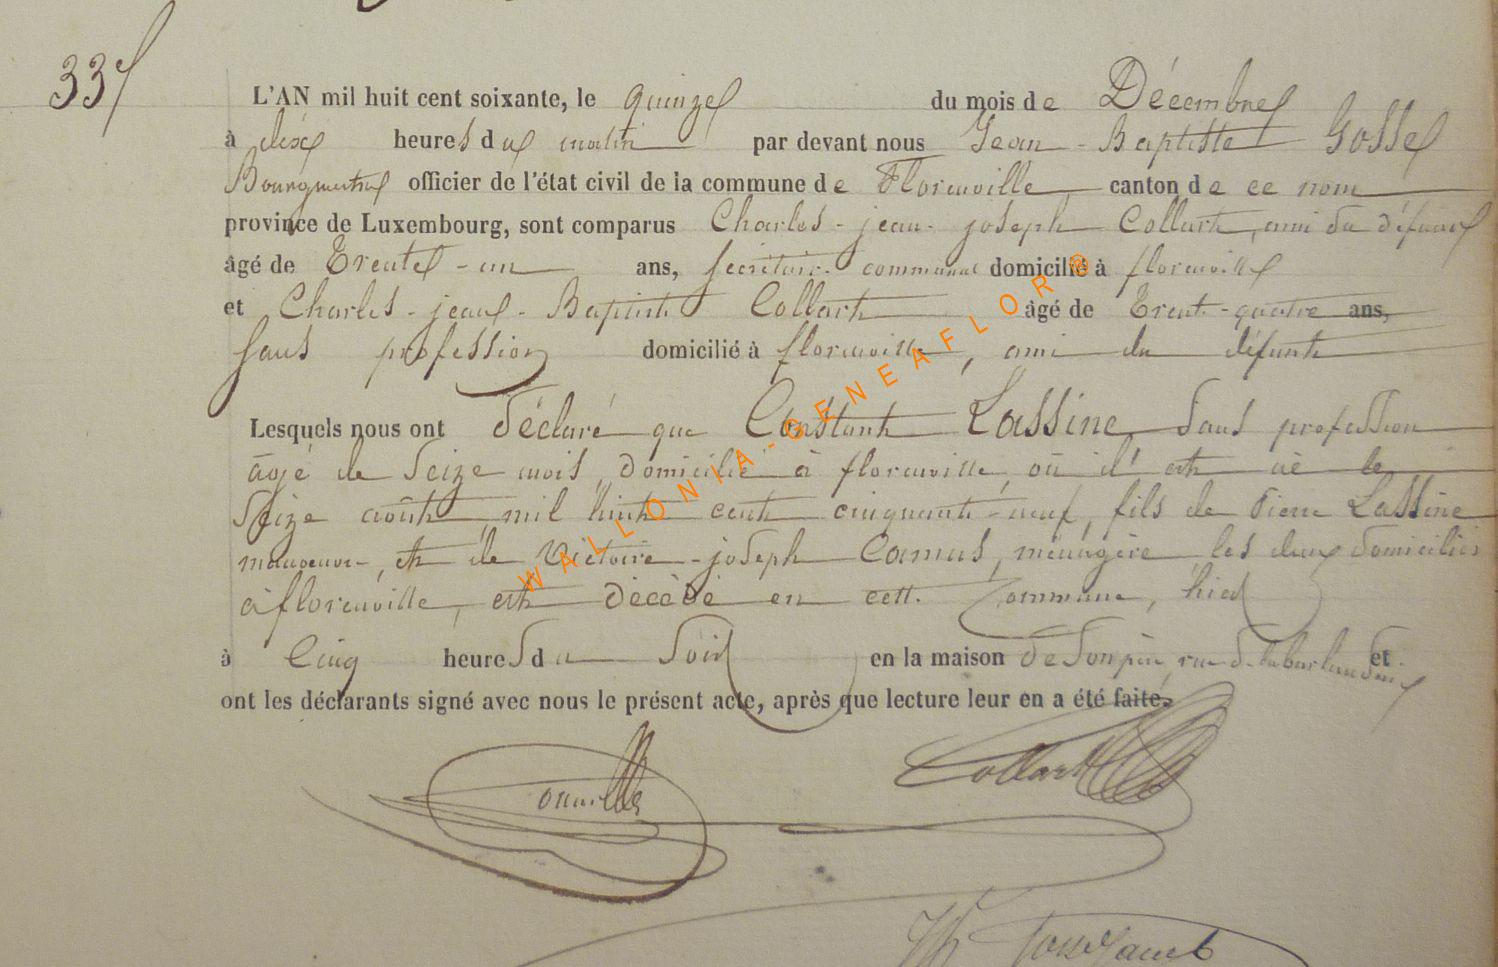 33
L'AN mil huit cent soixante, le quinze du mois de Décembre
à dix heures du matin par devant nous Jean-Baptiste Gosse
Bourgmestre officier de l'état civil de la commune de Florenville canton de ce nom
province de Luxembourg, sont comparus Charles-jean-joseph Collart, ami du défunt
âgé de Trente-un ans, secrétaire communal domicilié à florenville
et Charles-jean-Baptiste Collart âgé de Trent-quatre ans,
sans profession domicilié à florenville, ami du défunt
Lesquels nous ont déclaré que Constant Lassine, sans profession
âgé de seize mois, domicilié à florenville, où il est né le
seize août mil huit cent cinquante-neuf, fils de Pierre Lassine
manoeuvre, et de Victoire-joseph Camus, ménagère, les deux domiciliés
à florenville, est décédé en cette commune, hier
à cinq heures du soir en la maison de son père, rue de la et
ont les déclarants signé avec nous le présent acte, après que lecture leur en a été faite.
Collart
WALLONIA-GENEAFLOR®